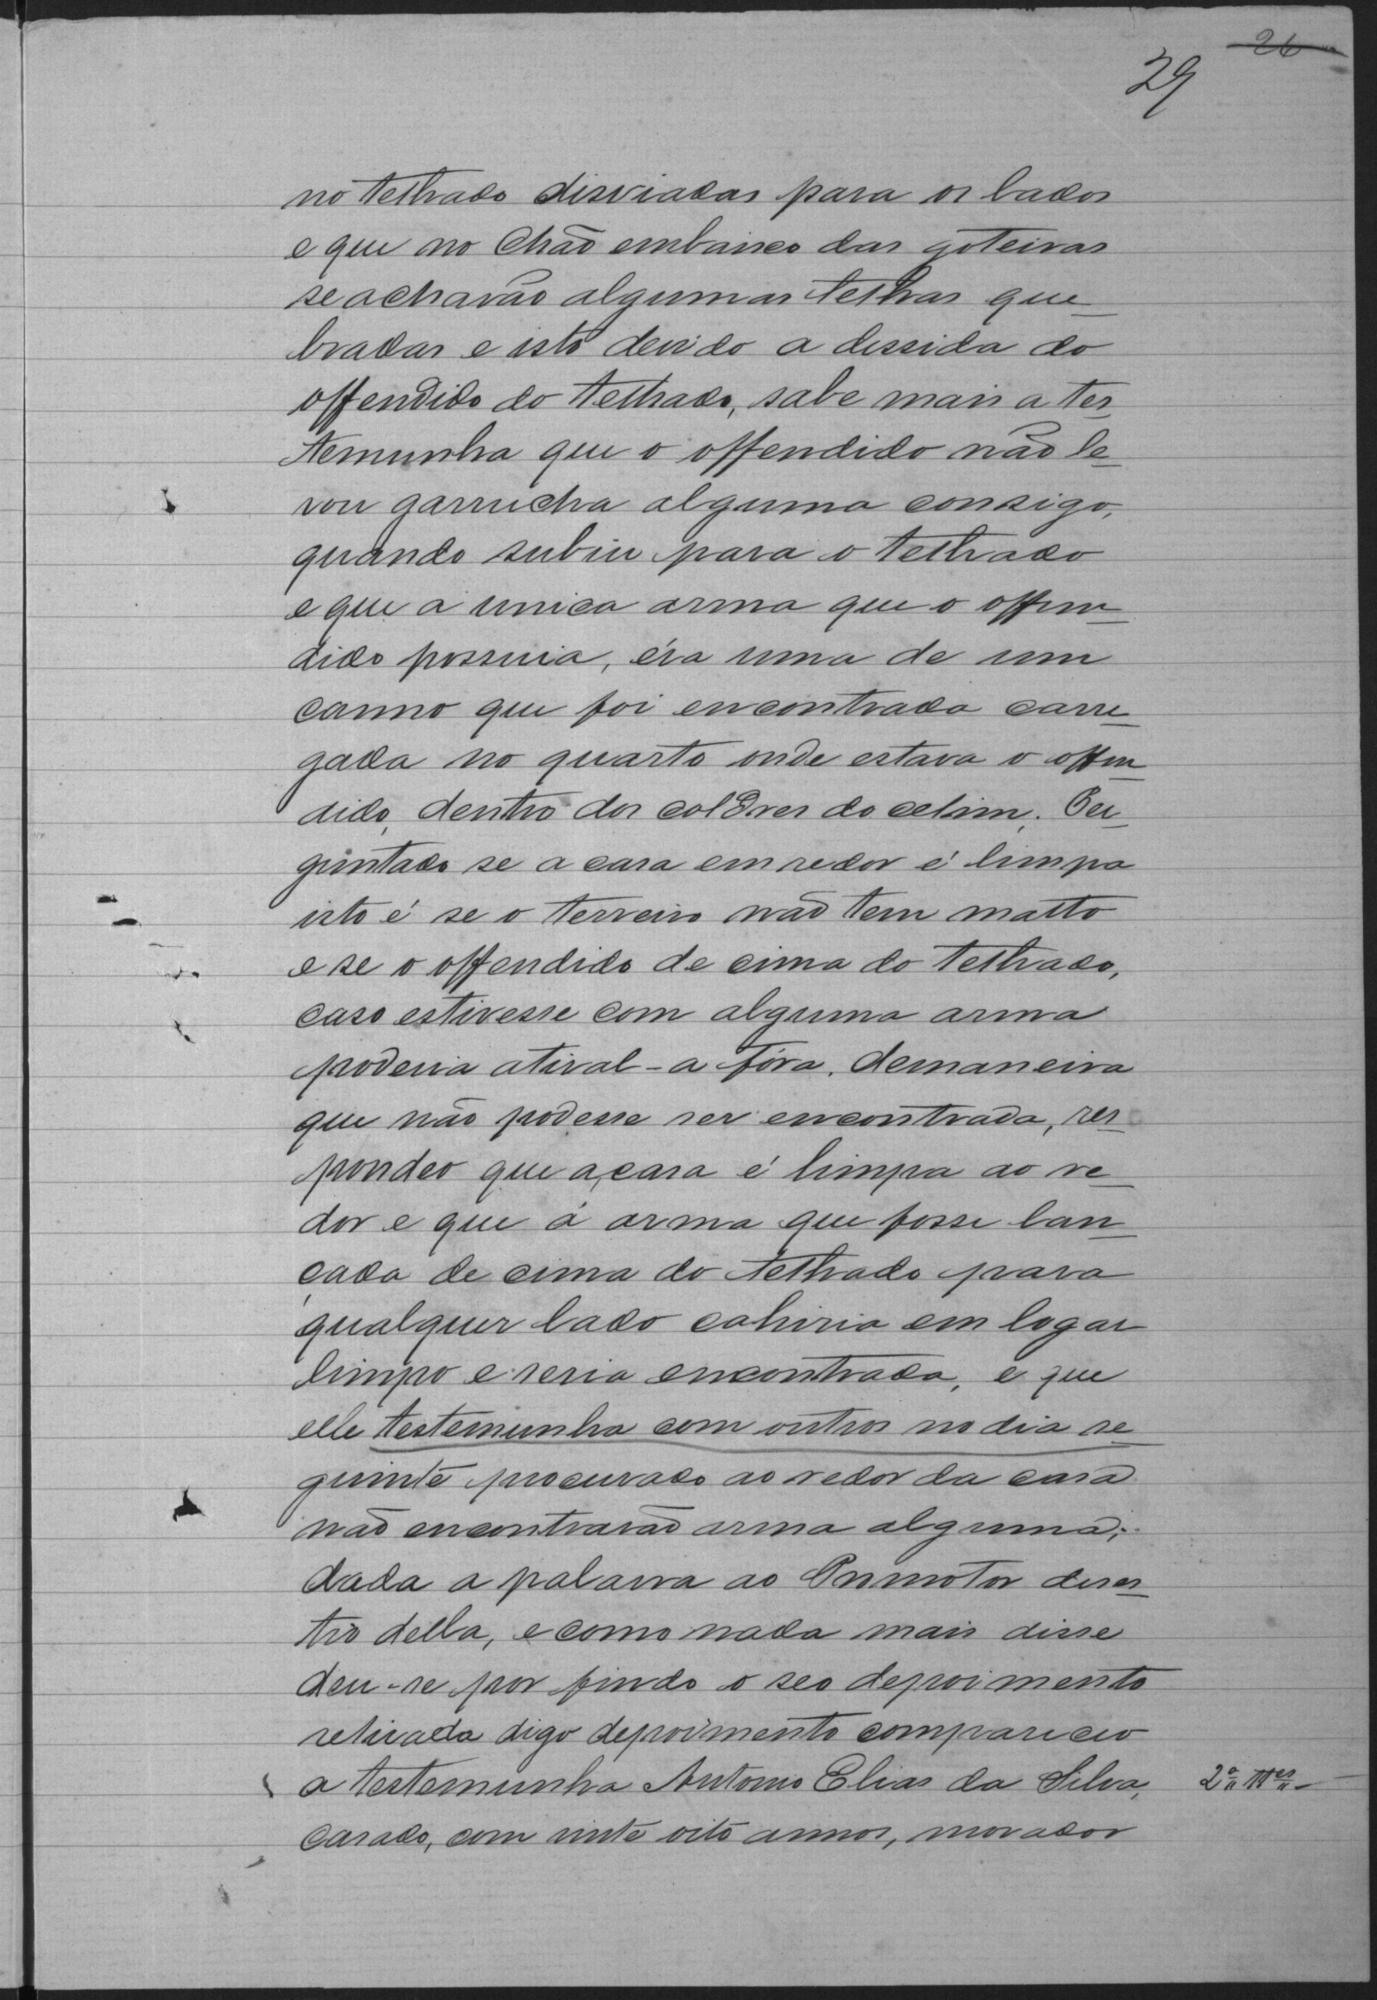 26
29
no telhado disviadas para os lados
e que no chão embaixo das goteiras
se achavão algumas telhas que_
bradas e isto devido a dessida do
offendido do telhado, sabe mais a tes_
temunha que o offendido não le_
vou garrucha alguma consigo,
quando subiu para o telhado
e que a unica arma que o offen_
dido possuia, éra uma de um
canno que foi encontrada carre_
gada no quarto onde estava o offen_
dido, dentro dos coldres do celim. Per_
guntado se a casa em redor é limpa
isto é se o terreiro não tem matto
e se o offendido de cima do telhado,
caso estivesse com alguma arma
poderia atiral-a fóra, demaneira
que não podesse ser encontrada, res_
pondeo que a casa é limpa ao re_
dor e que a arma que fosse lan_
çada de cima do telhado para
qualquer lado cahiria em logar
limpo e seria encontrada, e que
elle testemunha com outros no dia se_
guinte procurado ao redor da casa
não encontrarão arma alguma;
dada a palavra ao Promotor desis_
tio della, e como nada mais disse
deu-se por findo o seo depoimento
retirada digo depoimento compareceo
a testemunha Antonio Elias da Silva,
2ª Tes
casado, com vinte oito annos, morador